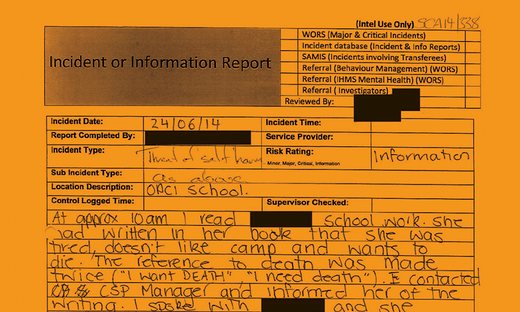 (Intel Use Only) SCA14/338
WORS (Major & Critical Incidents)
Incident database (Incident & Info Reports)
SAMIS (Incidents involving Transferees)
Referral (Behaviour Management) (WORS)
Referral (IHMS Mental Health) (WORS)
Referral ( Investigators)
Incident or Information Report
Reviewed By:
Incident Date: 24/06/14 Incident Time:
Report Completed By: Service Provider:
Incident Type: Threat of self harm Risk Rating: Information
Minor, Major, Critical, Information
Sub Incident Type: as above
Location Description: OPC1 School.
Control Logged Time: Supervisor Checked:
At approx 10am I read School work. She
had written in her book that she was
tired, doesn't like camp and wants to
die. The reference to death was made
twice ("I want DEATH", "I need death"). I contacted
CSP Manager and informed her of the
writing. I spoke with and she